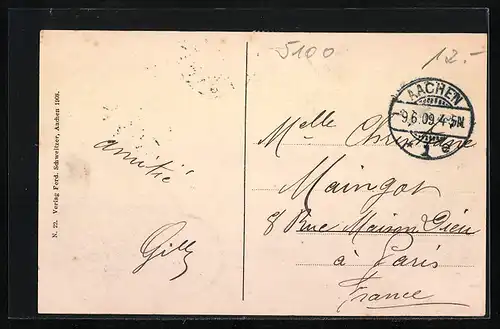 5100
12.-
AACHEN
9.6.09.4-5N.
* 1 e
N. 22. Verlag Ferd. Schweitzer, Aachen 1909.
amitié
Gilly
Melle Christiane
Maingot
8 Rue Maison Dieu
à Paris
France